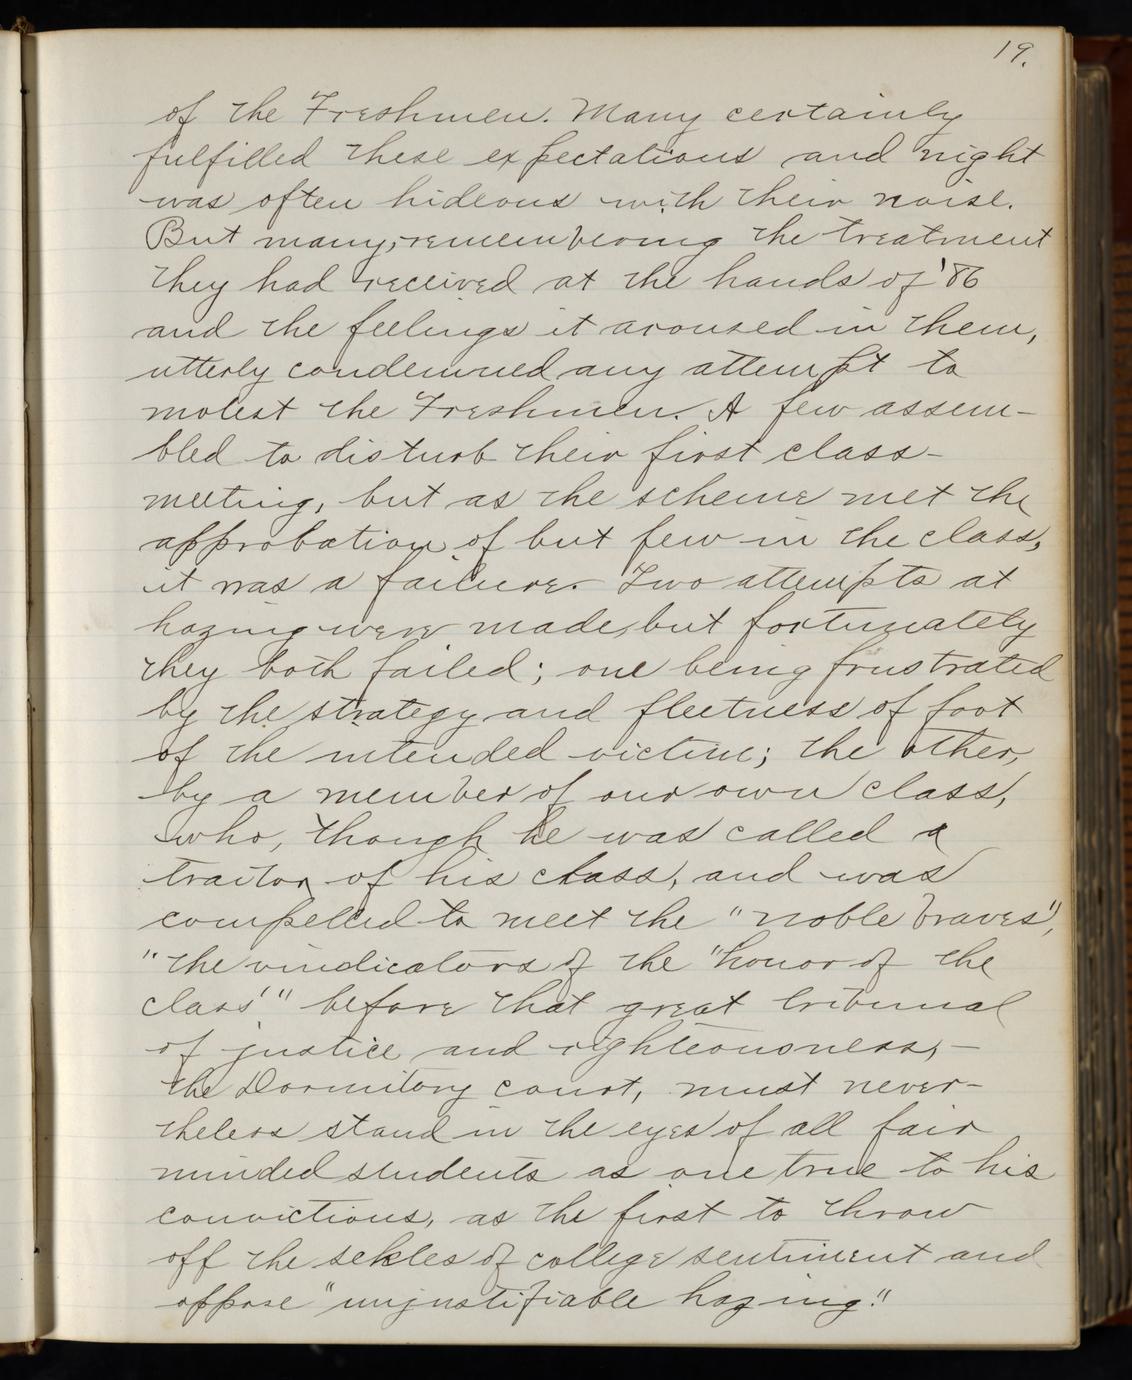 19.
of the Freshmen. Many certainly
fulfilled these expectations and night
was often hideous with their noise.
But many, remembering the treatment
they had received at the hands of '86
and the feelings it aroused in them,
utterly condemned any attempt to
molest the Freshmen. A few assem-
bled to disturb their first class-
meeting, but as the scheme met the
approbation of but few in the class,
it was a failure. Two attempts at
hazing were made, but fortunately
they both failed; one being frustrated
by the strategy and fleetness of foot
of the intended victim; the other,
by a member of our own class,
who, though he was called a
traitor of his class, and was
compelled to meet the "noble braves",
"the vindicators of the "honor of the
class"" before that great tribunal
of justice and righteousness,—
the Dormitory court, must never-
theless stand in the eyes of all fair
minded students as one true to his
convictions, as the first to throw
off the sekles of college sentiment and
oppose "unjustifiable hazing."